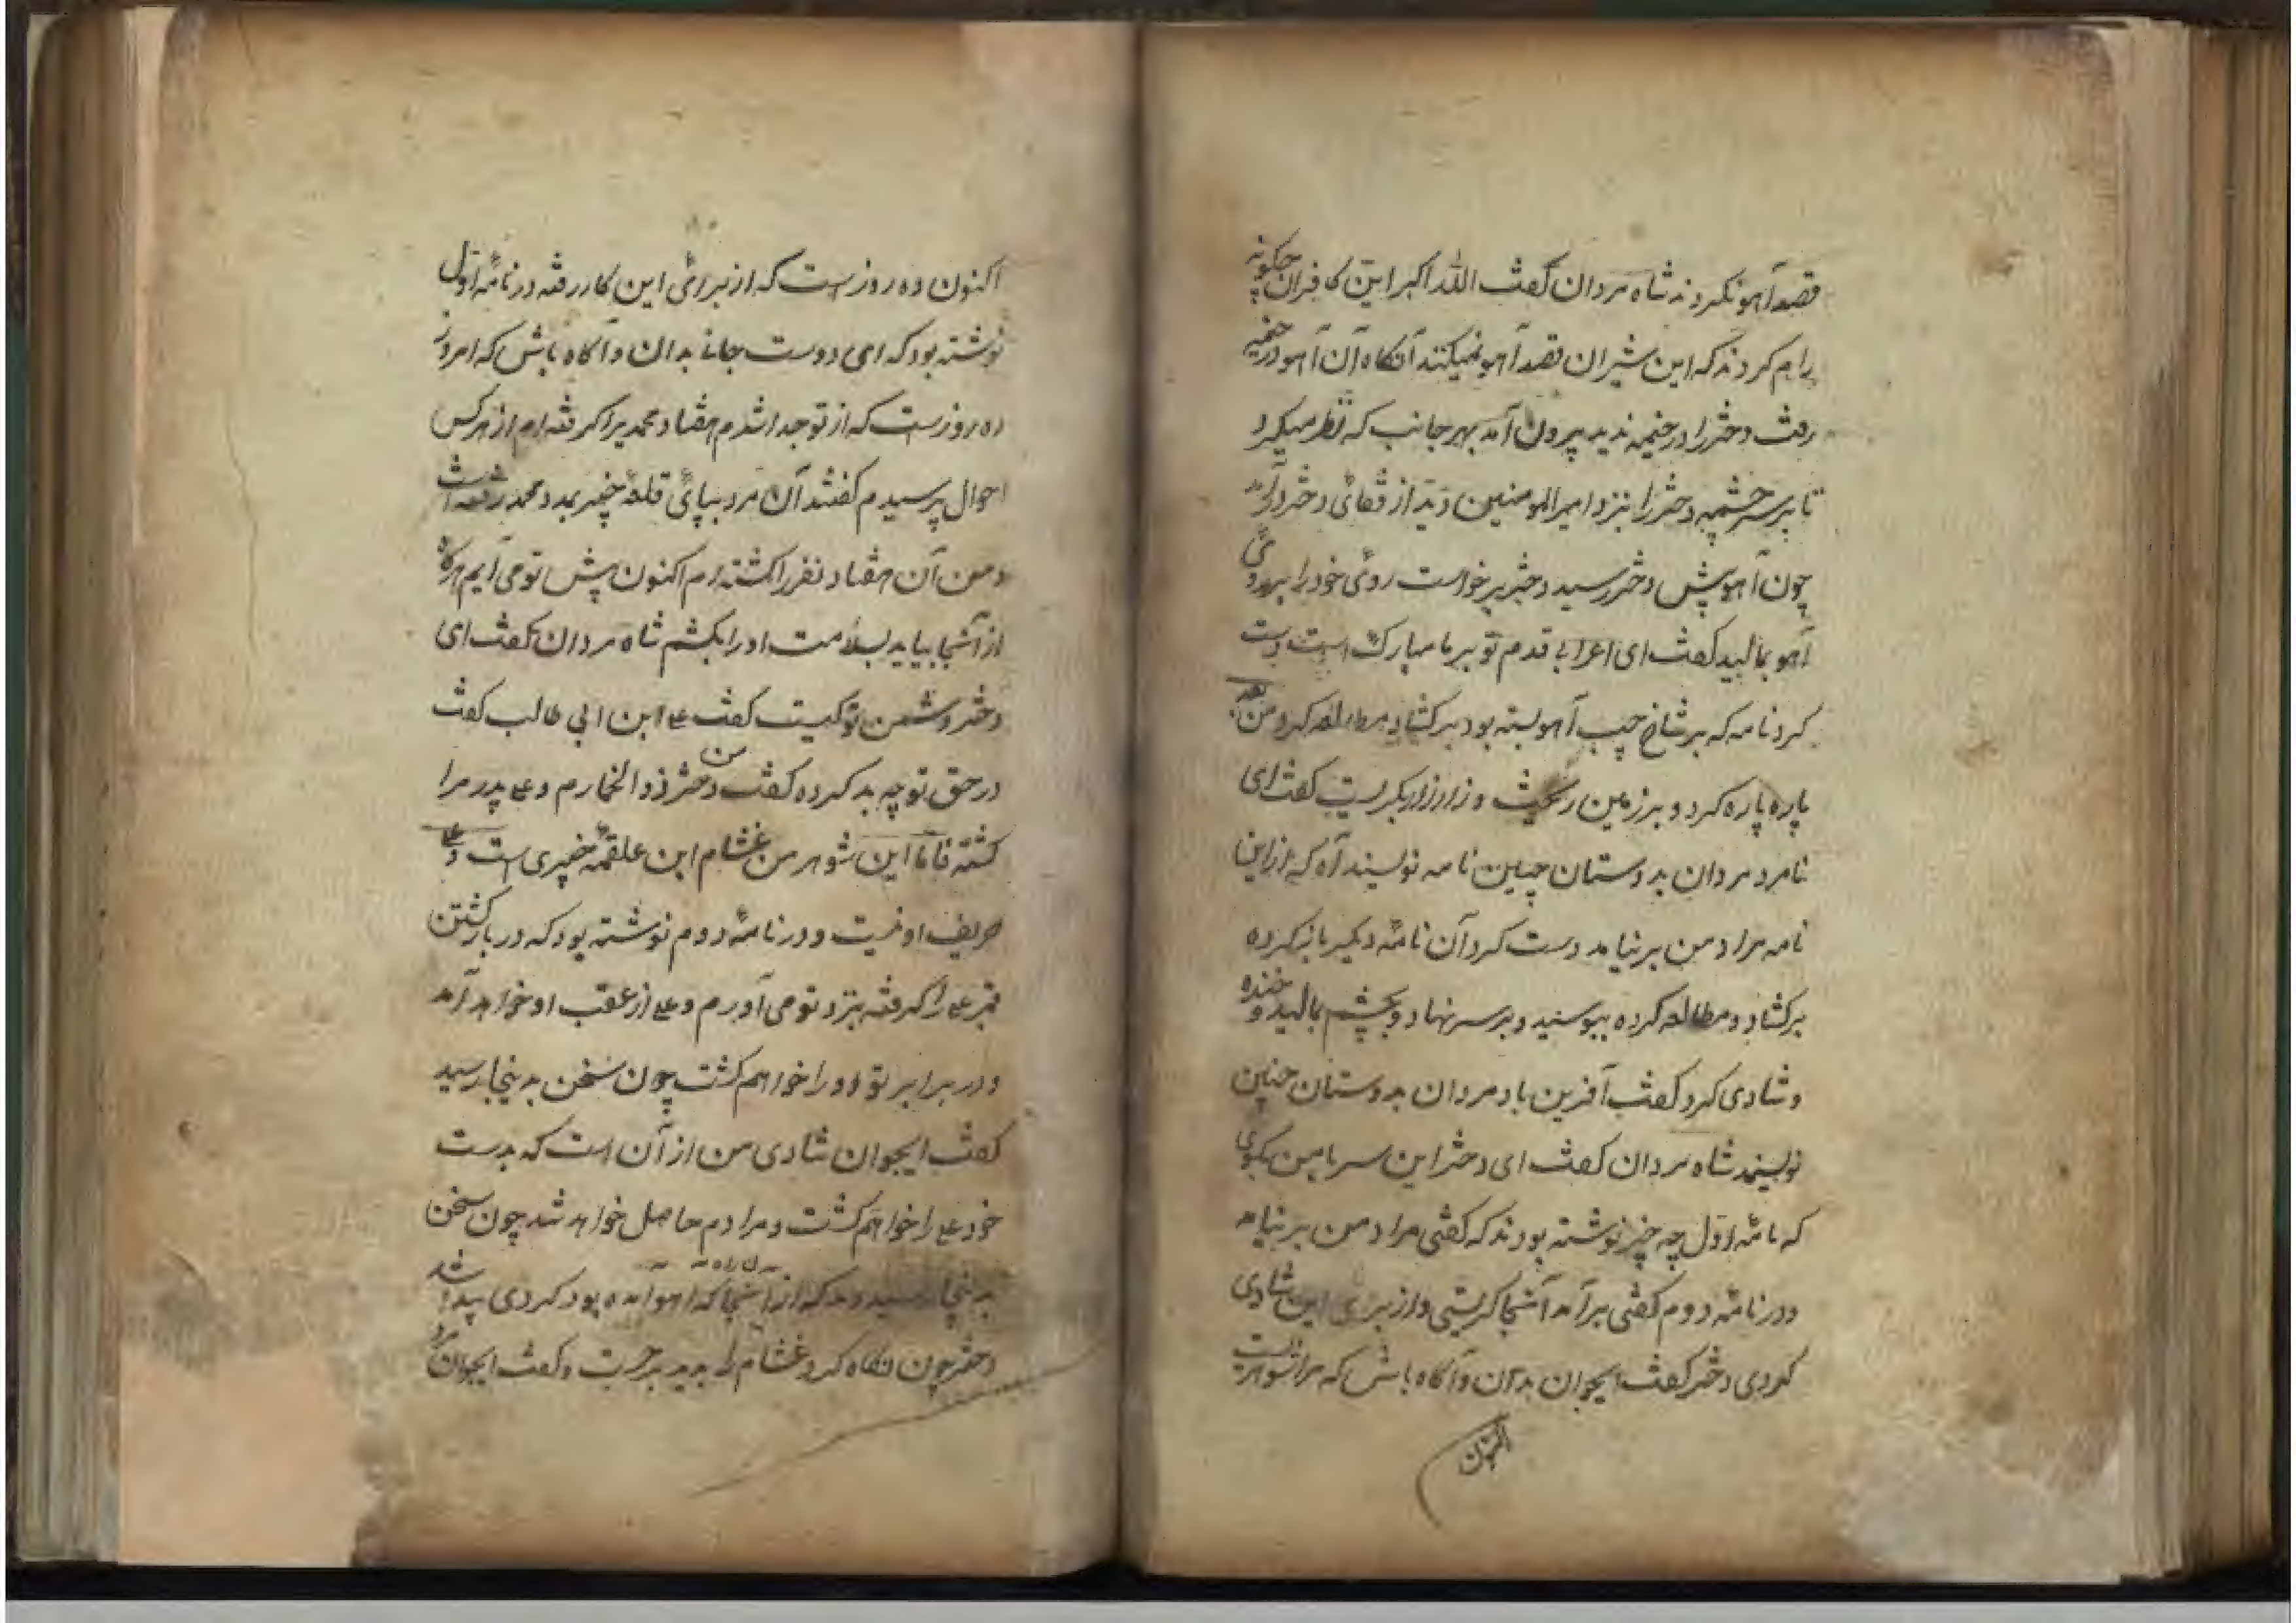 قصد آهو نکردند شاه مردان گفت الله اکبر این کافران چکونه
رام کردند که این شیران قصد آهو نمیکنند آنکاه آن آهو در خیمه
رفت دختر را در خیمه ندید بیرون آمد بهر جانب که نظر میکرد
تا بر سر چشمه دختر را بنزد امیرالمومنین دید از قفائی دختر درآمد
چون آهو پیش دختر رسید دختر برخواست روئی خود را بر روئی
آهو بمالید کفت ای اعرابی قدم تو بر ما مبارک است دست
کرد نامه که بر شاخ چپ آهو بسته بود برکشاد مطالعه کرد من بعد
پاره پاره کرد و بر زمین ریخت و زار زار بکریست کفت ای
نامرد مردان بدوستان چنین نامه نویسند آه که از این
نامه مراد من بر نیامد دست کرد آن نامهٔ دیکر باز کرده
برکشاد و مطالعه کرده ببوسید و بر سر نهاد و بچشم بمالید و خنده
و شادی کرد کفت آفرین باد مردان بدوستان چنین
نویسند شاه مردان کفت ای دختر این سر بامن بکوی
که نامهٔ اوّل چه چیز نوشته بودند که کفتی مراد من بر نیامد
و در نامهٔ دوم کفتی بر آمد آنجا کریستی و از برای این شادی
کردی دختر کفت ایجوان بدان و آکاه باش که مرا شوهریست
اکنون
اکنون ده روز است که از برائی این کار رفته در نامهٔ اوّل
نوشته بود که ای دوست جانی بدان و آکاه باش که امروز
ده روز است که از تو جدا شدم هفتاد محمدیرا کرفته ام از هرکس
احوال پرسیدم کفتند آن مرد بپائی قلعهٔ خیبر بمدد محمد رفته است
و من آن هفتاد نفر را کشته ام اکنون پیش تو می آیم هرکاه
از آنجا بیاید بسلامت او را بکشم شاه مردان کفت ای
دختر دشمن تو کیست کفت علی ابن ابی طالب کفت
در حق تو چه بد کرده کفت من دختر ذوالخمارم و علی پدر مرا
کشته فامّا این شوهر من غشام ابن علقمهٔ خیبری است و علی
حریف او نیست و در نامهٔ دوم نوشته بود که در بار کشتن
قنبر علی را کرفته بنزد تو می آورم و علی از عقب او خواهد آمد
و در برابر تو او را خواهم کشت چون سخن بدینجا رسید
کفت ایجوان شادی من از آن است که بدست
خود علی را خواهم کشت و مرادم حاصل خواهد شد چون سخن
بدینجا رسید دید که از آنجا که آهو آمده بود کردی پیدا شد
دختر چون نکاه کرد غشام را بدید برجست و کفت ایجوان